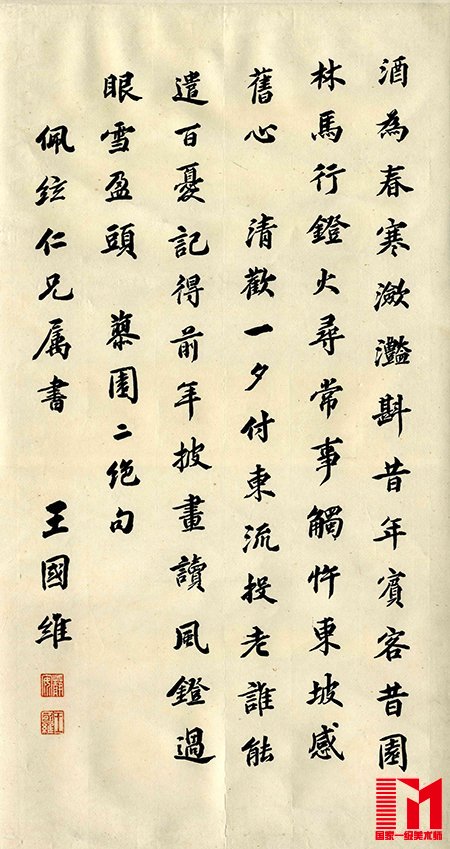 酒為春寒瀲灩斟昔年賓客昔園
林馬行鐙火尋常事觸忤東坡感
舊心 清歡一夕付東流投老誰能
遣百憂記得前年披畫讀風鐙過
眼雪盈頭 園二絕句
佩仁兄属書 王國維
国家一级美术师